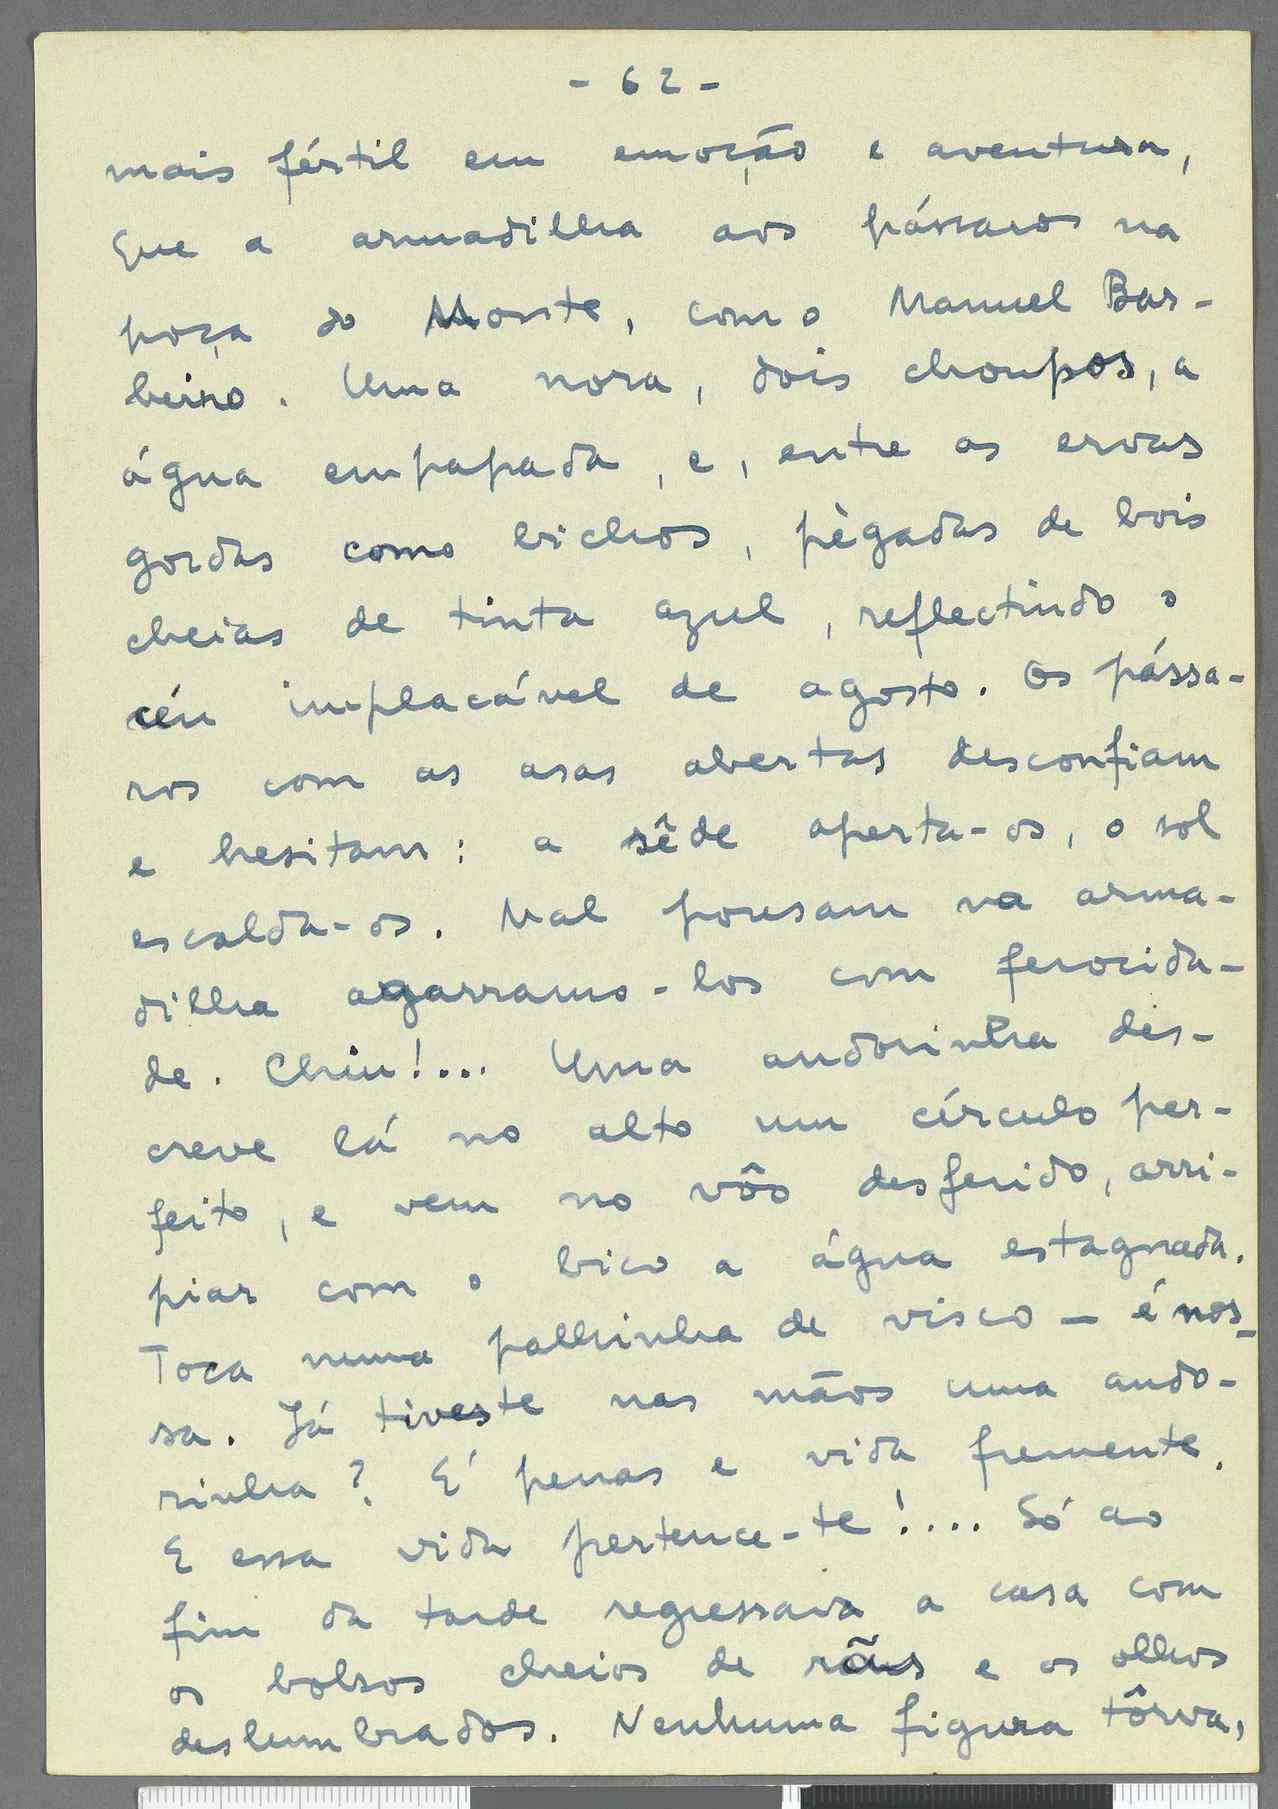 - 62 -
mais fértil em emoção e aventura,
Que a armadilha aos pássaros na
poça do Monte, com o Manuel Bar-
beiro. Uma nora, dois choupos, a
água empapada, e, entre as ervas
gordas como bichos, pègadas de bois
cheias de tinta azul, reflectindo o
céu implacável de agosto. Os pássa-
ros com as asas abertas desconfiam
e hesitam: a sêde aperta-os, o sol
escalda-os. Mal pousam na arma-
dilha agarramo-los com ferocida-
de. Chiu!... Uma andorinha des-
creve lá no alto um círculo per-
feito, e vem no vôo desferido, arri-
piar com o bico a água estagnada.
Toca numa palhinha de visco — é nos-
sa. Já tiveste nas mãos uma ando-
rinha? É penas e vida fremente.
E essa vida pertence-te!.... Só ao
fim da tarde regressava a casa com
os bolsos cheios de rãs e os olhos
deslumbrados. Nenhuma figura tôrva,